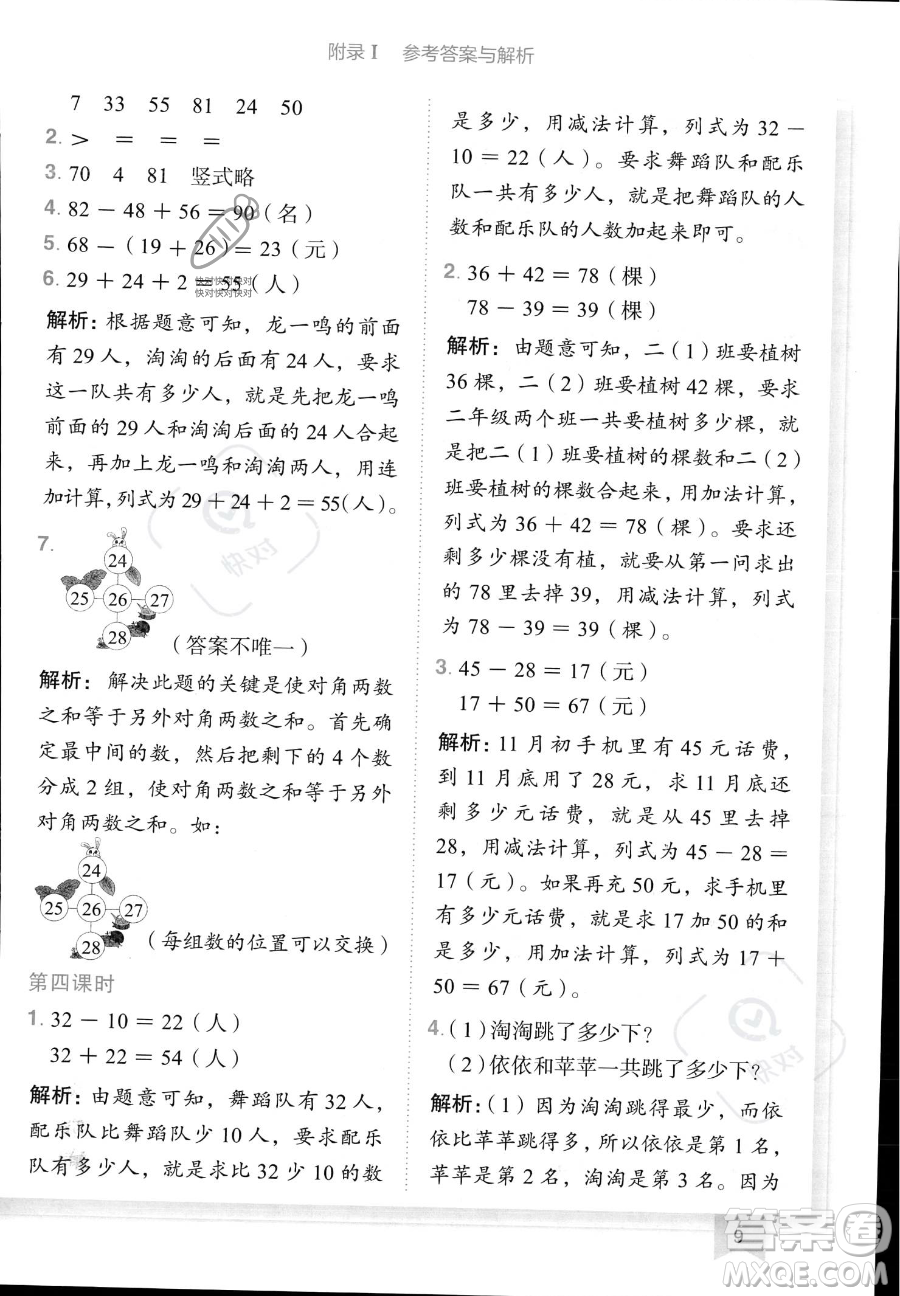 附录Ⅰ 参考答案与解析
7 33 55 81 24 50
2. > = = =
3. 70 4 81 竖式略
4. 82－48＋56＝90（名）
5. 68－（19＋26）＝23（元）
6. 29＋24＋2＝55（人）
快对快对快对
快对快对快对
解析：根据题意可知，龙一鸣的前面
有 29 人，淘淘的后面有 24 人，要求
这一队共有多少人，就是先把龙一鸣
前面的 29 人和淘淘后面的 24 人合起
来，再加上龙一鸣和淘淘两人，用连
加计算，列式为 29＋24＋2＝55（人）。
7.
24
25 26 27
28
（答案不唯一）
解析：解决此题的关键是使对角两数
之和等于另外对角两数之和。首先确
定最中间的数，然后把剩下的 4 个数
分成 2 组，使对角两数之和等于另外
对角两数之和。如：
24
25 26 27
28
（每组数的位置可以交换）
第四课时
1. 32－10＝22（人）
32＋22＝54（人）
解析：由题意可知，舞蹈队有 32 人，
配乐队比舞蹈队少 10 人，要求配乐
队有多少人，就是求比 32 少 10 的数
是多少，用减法计算，列式为 32－
10＝22（人）。要求舞蹈队和配乐
队一共有多少人，就是把舞蹈队的人
数和配乐队的人数加起来即可。
2. 36＋42＝78（棵）
78－39＝39（棵）
解析：由题意可知，二（1）班要植树
36 棵，二（2）班要植树 42 棵，要求
二年级两个班一共要植树多少棵，就
是把二（1）班要植树的棵数和二（2）
班要植树的棵数合起来，用加法计算，
列式为 36＋42＝78（棵）。要求还
剩多少棵没有植，就是从第一问求出
的 78 里去掉 39，用减法计算，列式
为 78－39＝39（棵）。
3. 45－28＝17（元）
17＋50＝67（元）
解析：11 月初手机里有 45 元话费，
到 11 月底用了 28 元，求 11 月底还
剩多少元话费，就是从 45 里去掉
28，用减法计算，列式为 45－28＝
17（元）。如果再充 50 元，求手机里
有多少元话费，就是求 17 加 50 的和
是多少，用加法计算，列式为 17＋
50＝67（元）。
4.（1）淘淘跳了多少下？
（2）依依和苹苹一共跳了多少下？
解析：（1）因为淘淘跳得最少，而依
依比苹苹跳得多，所以依依是第 1 名，
苹苹是第 2 名，淘淘是第 3 名。因为
快对
快对
9
答案圈
MXQE.COM